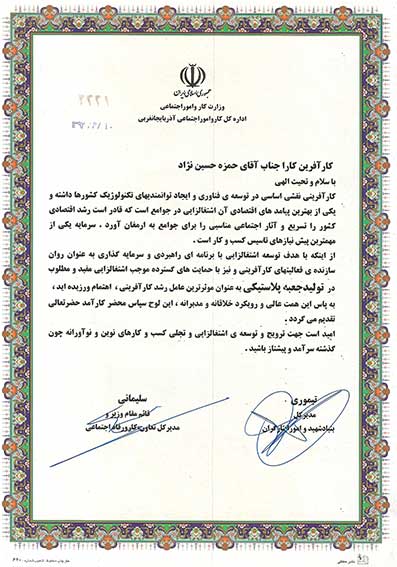 جمهوری اسلامی ایران
وزارت کار و امور اجتماعی
اداره کل کار و امور اجتماعی آذربایجانغربی
۲۲۲۱
کارآفرین کارا جناب آقای حمزه حسین نژاد
با سلام و تحیت الهی
کارآفرینی نقشی اساسی در توسعه ی فناوری و ایجاد توانمندیهای تکنولوژیک کشورها داشته و
یکی از بهترین پیامد های اقتصادی آن اشتغالزایی در جوامع است که قادر است رشد اقتصادی
کشور را تسریع و آثار اجتماعی مناسبی را برای جوامع به ارمغان آورد . سرمایه یکی از
مهمترین پیش نیازهای تاسیس کسب و کار است .
از اینکه با هدف توسعه اشتغالزایی با برنامه ای راهبردی و سرمایه گذاری به عنوان روان
سازنده ی فعالیتهای کارآفرینی و نیز با حمایت های گسترده موجب اشتغالزایی مفید و مطلوب
در تولیدجعبه پلاستیکی به عنوان موثرترین عامل رشد کارآفرینی ، اهتمام ورزیده اید ،
به پاس این همت عالی و رویکرد خلاقانه و مدبرانه ، این لوح سپاس محضر کارآمد حضرتعالی
تقدیم می گردد .
امید است جهت ترویج و توسعه ی اشتغالزایی و تجلی کسب و کارهای نوین و نوآورانه چون
گذشته سرآمد و پیشتاز باشید .
تیموری
مدیرکل
بنیادشهید و امور ایثارگران
سلیمانی
قائم مقام وزیر و
مدیرکل تعاون،کارورفاه اجتماعی